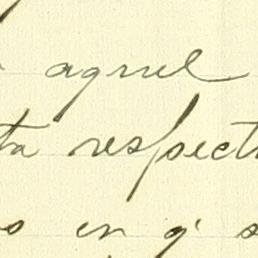 aquel
ta respect
s en q' s